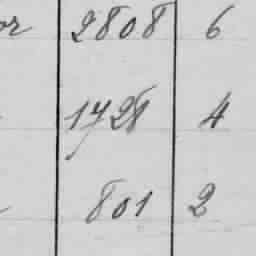 or 2808 6
1728 4
801 2